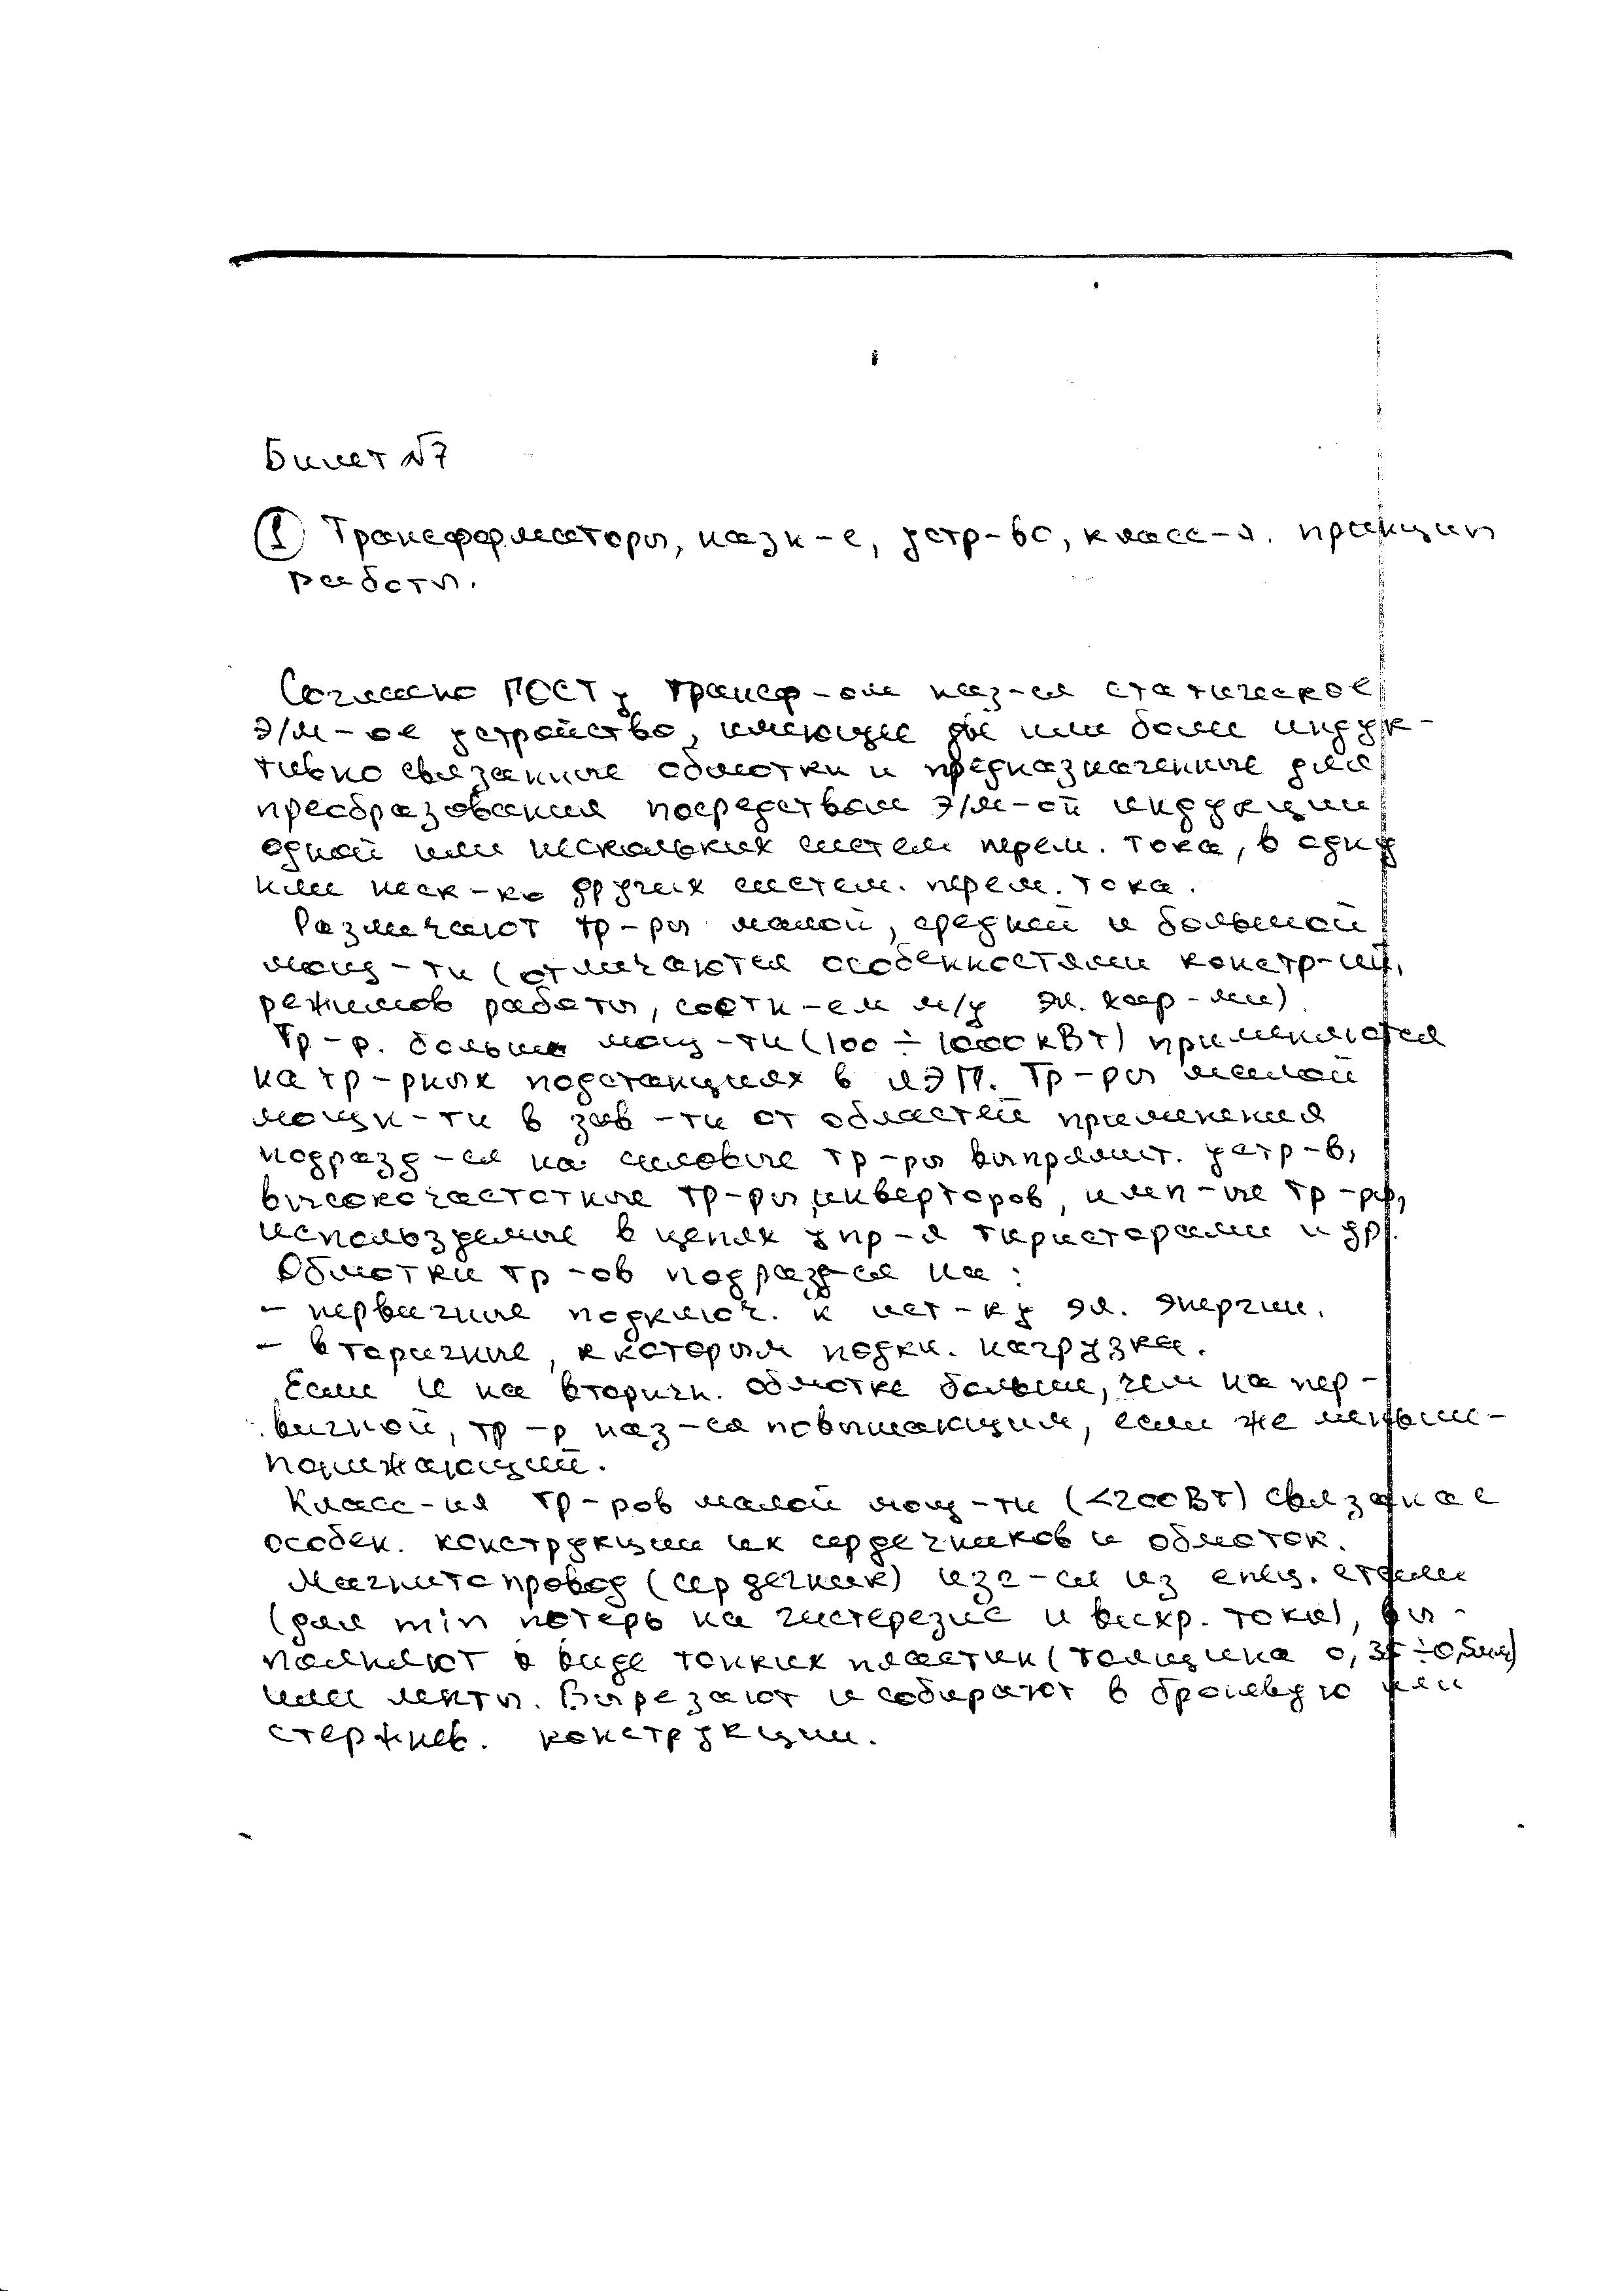 Билет №7
① Трансформаторы, назн-е, устр-во, класс-я. принцип
работы.
Согласно ГОСТу трансф-ом наз-ся статическое
э/м-ое устройство, имеющее две или более индук-
тивно связанные обмотки и предназначенные для
преобразования посредством э/м-ой индукции
одной или нескольких систем перем. тока, в одну
или неск-ко других систем. перем. тока.
Различают тр-ры малой, средней и большой
мощ-ти (отличаются особенностями констр-ций,
режимов работы, соотн-ем м/у эл. хар-ми)
Тр-р. больше мощ-ти (100 ÷ 1000 кВт) применяются
на тр-рных подстанциях в ЛЭП. Тр-ры малой
мощн-ти в зав-ти от областей применения
подразд-ся на силовые тр-ры выпрямит. устр-в,
высокочастотные тр-ры инверторов, имп-ые тр-ры,
используемые в цепях упр-я тиристорами и др.
Обмотки тр-ов подразд-ся на:
- первичные подключ. к ист-ку эл. энергии.
- вторичные, к которым подкл. нагрузка.
Если U на вторичн. обмотке больше, чем на пер-
вичной, тр-р наз-ся повышающим, если же меньше-
понижающий.
Класс-ия тр-ров малой мощ-ти (<200Вт) связана с
особен. конструкции их сердечников и обмоток.
Магнитопровод (сердечник) изг-ся из спец. стали
(для min потерь на гистерезис и вихр. токи), вы-
полняют в виде тонких пластин (толщина 0,35÷0,5мм)
или ленты. Вырезают и собирают в броневую или
стержнев. конструкции.